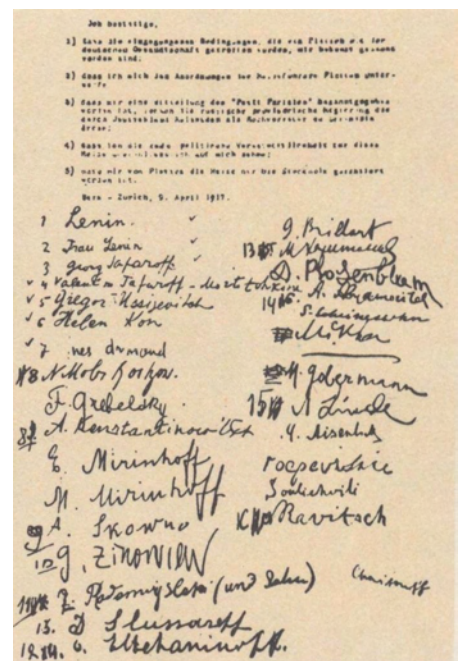 Ich bestätige,
1) dass die eingegangenen Bedingungen, die von Platten mit der
deutschen Gesandtschaft getroffen wurden, mir bekannt gemacht
worden sind;
2) dass ich mich den Anordnungen des Reiseführers Platten unter-
werfe;
3) dass mir eine Mitteilung des "Petit Parisien" bekanntgegeben
worden ist, wonach die russische provisorische Regierung die
durch Deutschland Reisenden als Hochverräter zu behandeln
drohe;
4) dass ich die ganze politische Verantwortlichkeit für diese
Reise ausschliesslich auf mich nehme;
5) dass mir von Platten die Reise nur bis Stockholm garantiert
worden ist.
Bern - Zürich, 9. April 1917.
1 Lenin.
2 Frau Lenin
3 Georg Safaroff
4 Valentin Safaroff - Mortotschkine
5 Gregor Ussijewitsch
6 Helen Kon
7 Ines Armand
8 N. Boitzow.
F. Grebelsky
A. Konstantinowitsch
E. Mirinhoff
M. Mirinhoff
A. Skowno
G. Zinowiew
Z. Radomyslski (und Sohn)
D. Slussareff
B. Eltchaninoff.
G. Brillant
13
D. Rosenblum
14 A. Abramovitch
S. Scheinessohn
M. Gobermann
15 A. Linde
M. Aisenhud
Souliachvili
Ravitsch
Charitonoff